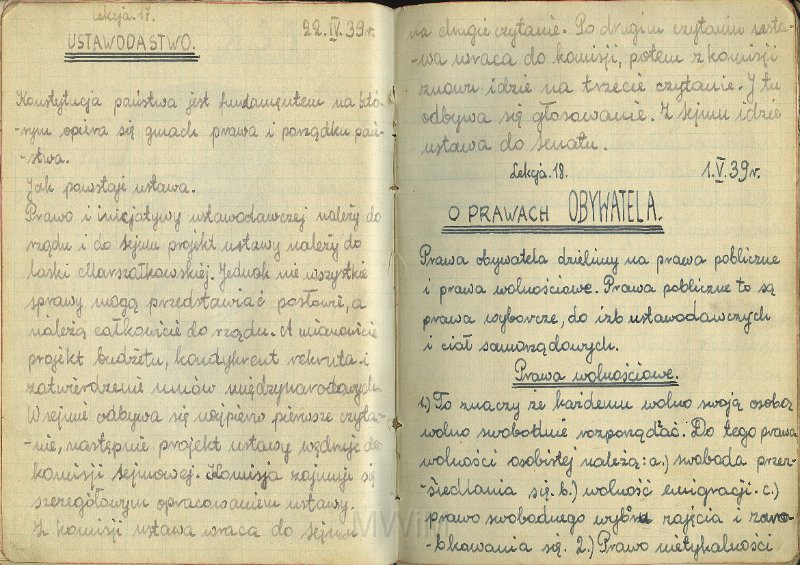 Lekcja.17.
22.IV.39r.
USTAWODASTWO.
Konstytucja państwa jest fundamentem na któ-
-rym opiera się gmach prawa i porządku pań-
-stwa.
Jak powstaji ustawa.
Prawo i inicjatywy ustawodawczej należy do
rządu i do sejmu projekt ustawy należy do
laski Marszałkowskiej. Jednak nie wszystkie
sprawy mogą przedstawiać posłowie, a
należą całkowicie do rządu. A mianowicie
projekt budżetu, kondykrent rekruta i
zatwierdzenie umów międzynarodowych
W sejmie odbywa się najpierw pierwsze czyta-
-nie, następnie projekt ustawy wędruje do
komisji sejmowej. Komisja zajmuje się
szczegółowym opracowaniem ustawy
Z komisji ustawa wraca do sejmu
na drugie czytanie. Po drugim czytaniu usta-
-wa wraca do komisji, potem z komisji
znowu idzie na trzecie czytanie. I tu
odbywa się głosowanie. Z sejmu idzie
ustawa do senatu.
Lekcja.18. 1.V.39r.
O PRAWACH OBYWATELA.
Prawa obywatela dzielimy na prawa pobliczne
i prawa wolnościowe. Prawa pobliczne to są
prawa wyborcze, do izb ustawodawczych
i ciał samorządowych.
Prawa wolnościowe.
1.) To znaczy że każdemu wolno swoją osobą
wolno swobodnie rozporządźać. Do tego prawa
wolności osobistej należą: a.) swoboda prze-
-siedlania się. b.) wolność emigracji. c.)
prawo swobodnego wyboru zajęcia i zaro-
-bkowania się. 2.) Prawo nietykalności
MWiM